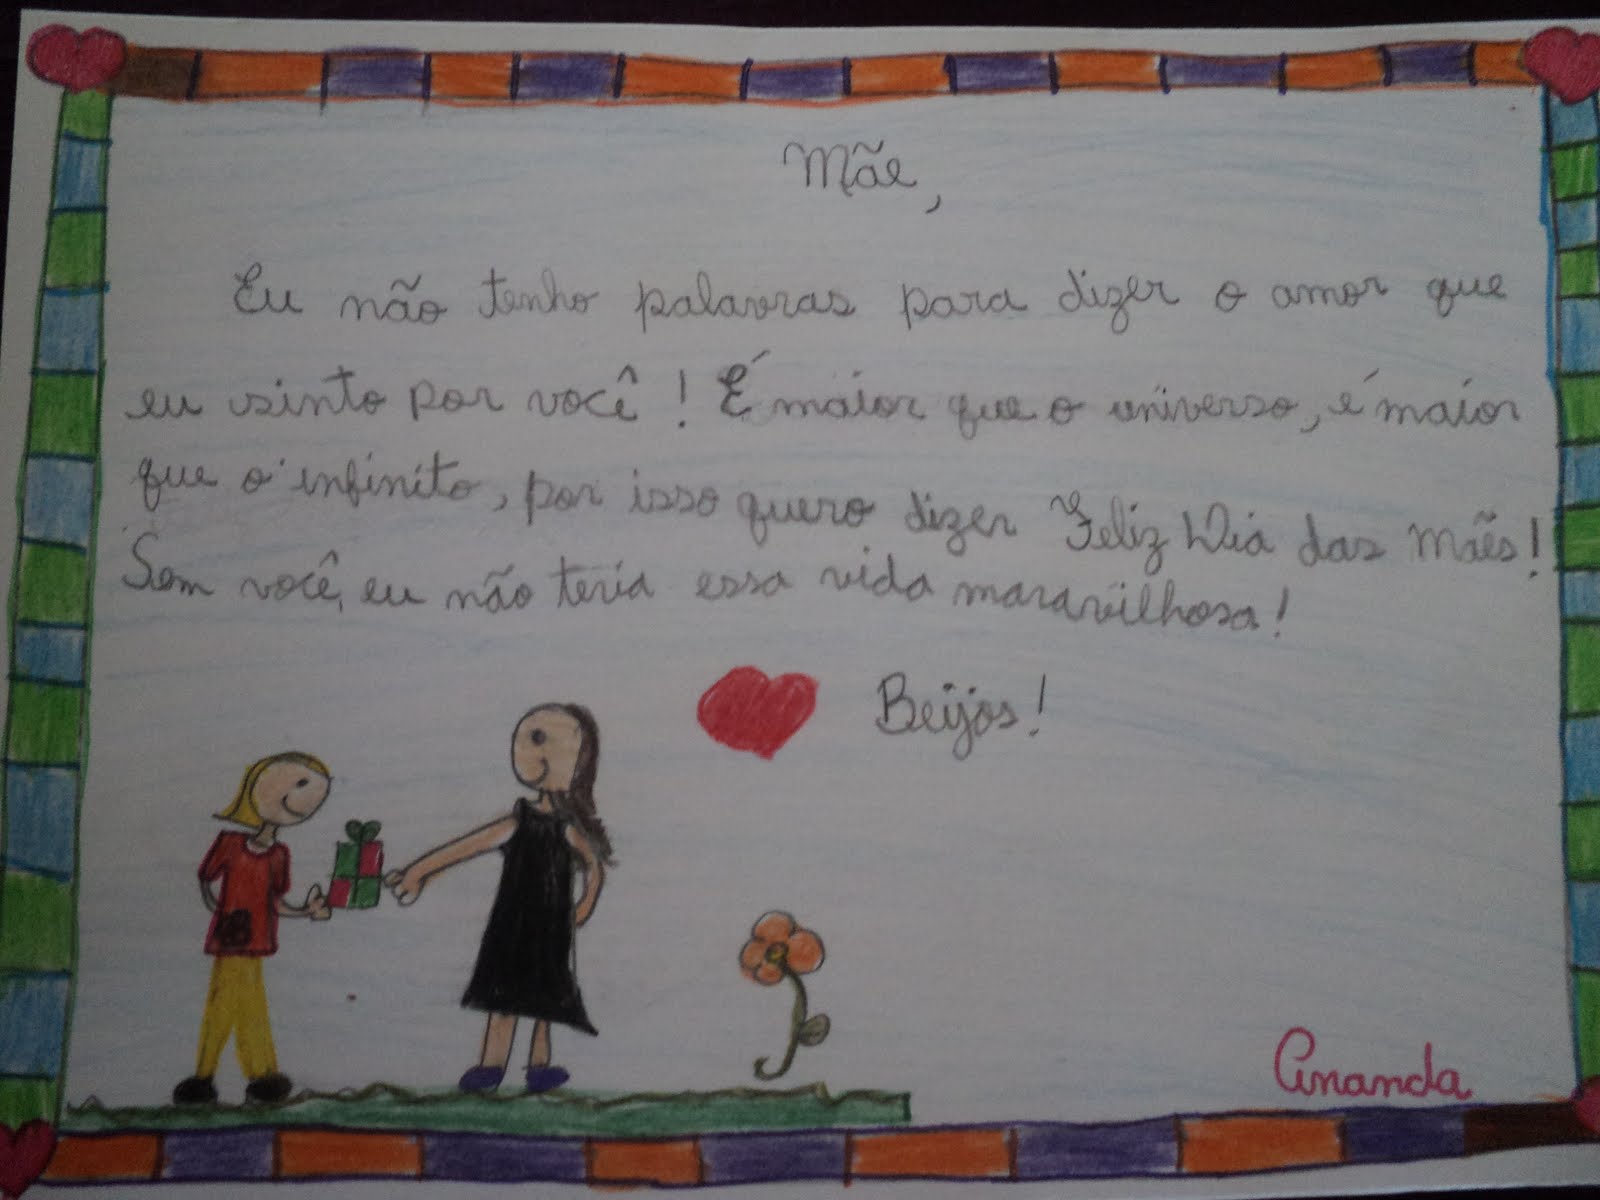 Mãe,
Eu não tenho palavras para dizer o amor que
eu sinto por você! É maior que o universo, é maior
que o infinito, por isso quero dizer Feliz Dia das Mães!
Sem você, eu não teria essa vida maravilhosa!
Beijos!
Ananda